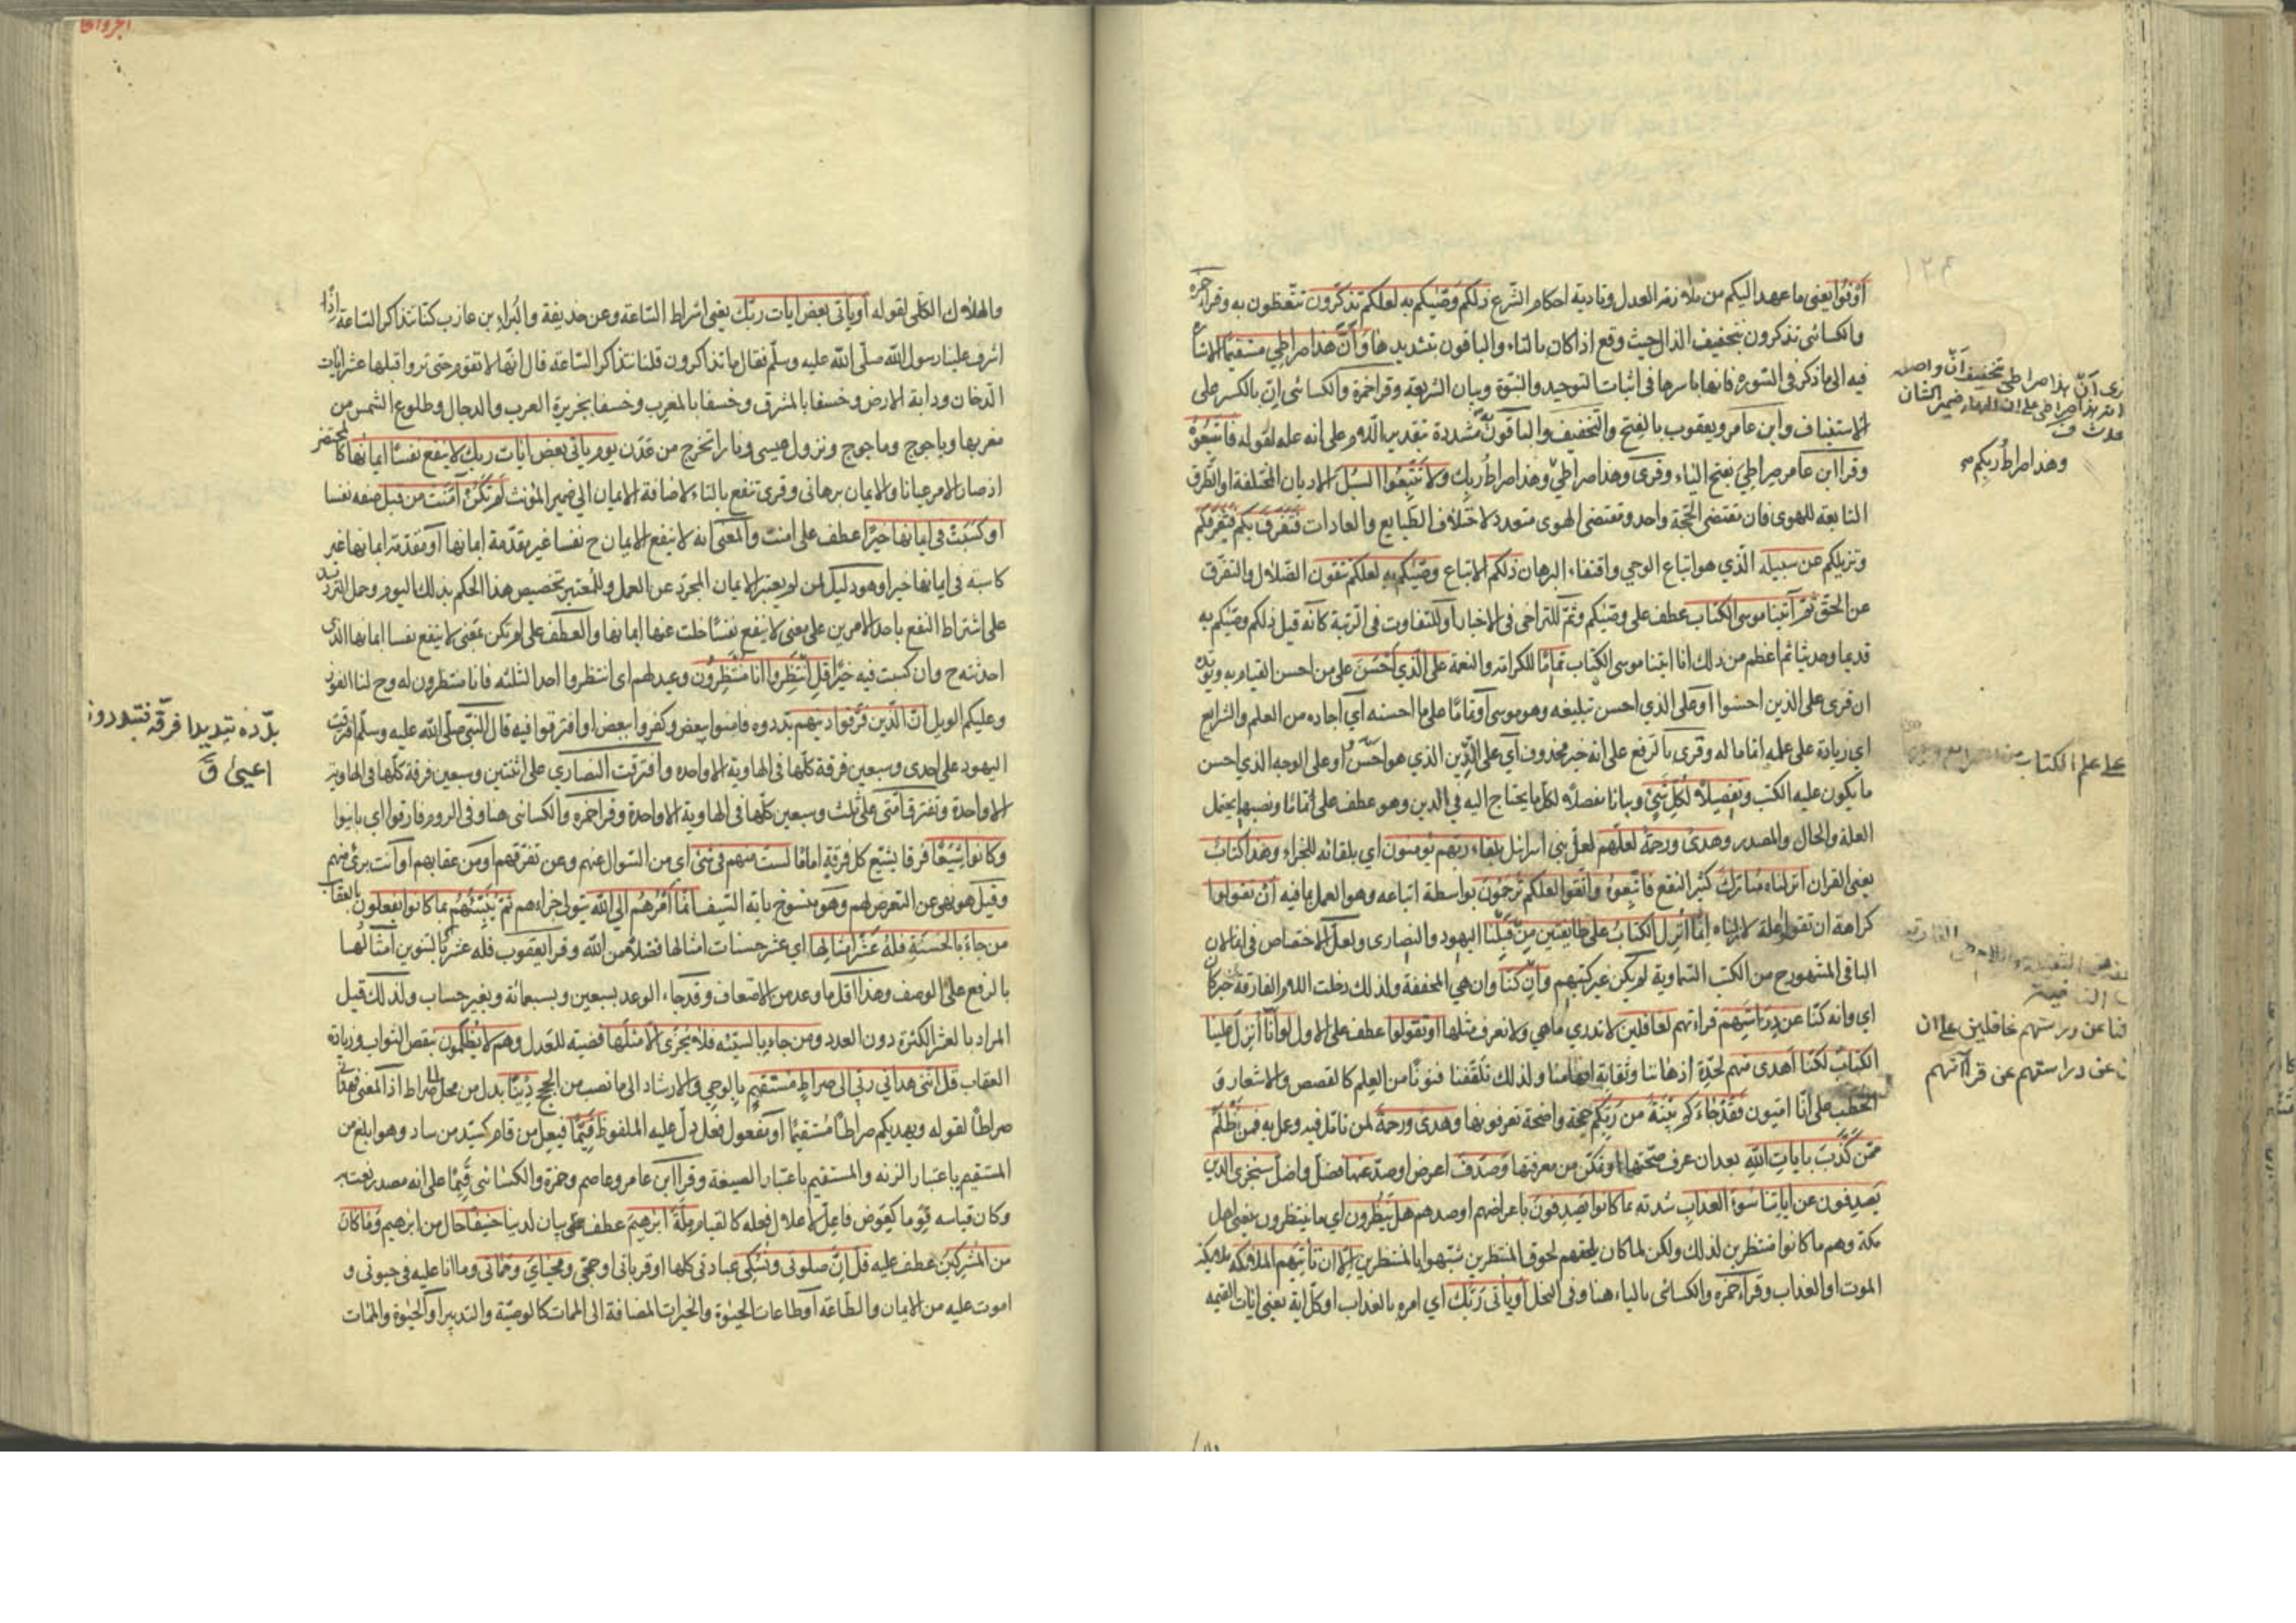 أوفوا يعني ما عهد اليكم من ملازمة العدل وتادية احكام الشرع ذلكم وصيكم به لعلكم تذكرون تتعظون به وقرا حمزة
والكسائي تذكرون بتخفيف الذال حيث وقع اذا كان بالتاء والباقون بتشديدها وأن هذا صراطي مستقيما الاشارة
فيه الى ما ذكر في السورة فانها باسرها في اثبات التوحيد والنبوة وبيان الشريعة وقرا حمزة والكسائي ان بالكسر على
الاستيناف وابن عامر ويعقوب بالفتح والتخفيف والباقون به مشددة بتقدير اللام على انه علة لقوله فاتبعوه
وقرا ابن عامر صراطي بفتح الياء وقرئ وهذا صراطي وهذا صراط ربك ولا تتبعوا السبل الاديان المختلفة او الطرق
التابعة للهوى فان مقتضى الحجة واحد ومقتضى الهوى متعدد لاختلاف الطبايع والعادات فتفرق بكم فتفرقكم
وتزيلكم عن سبيله الذي هو اتباع الوحي واقتفاء البرهان ذلكم الاتباع وصيكم به لعلكم تتقون الضلال والتفرق
عن الحق ثم آتينا موسى الكتاب عطف على وصيكم وثم للتراخي في الاخبار او للتفاوت في الرتبة كانه قيل ذلكم وصيكم به
قديما وحديثا ثم اعظم من ذلك انا اتينا موسى الكتاب تماما للكرامة والنعمة على الذي أحسن على من احسن القيام به ويؤيده
ان قرئ على الذين احسنوا او على الذي احسن تبليغه وهو موسى او تماما على ما احسنه اي اجاده من العلم والشرايع
اي زيادة على علمه اتماما له وقرئ بالرفع على انه خبر محذوف اي على الذين الذي هو احسن او على الوجه الذي احسن
ما يكون عليه الكتب وتفصيلا لكل شيء وبيانا مفصلا لكل ما يحتاج اليه في الدين وهو عطف على تماما ونصبهما يحتمل
العلة والحال والمصدر وهدى ورحمة لعلهم لعل بني اسرائل بلقاء ربهم يؤمنون اي بلقائه للجزاء وهذا كتاب
يعني القران انزلناه مبارك كثير النفع فاتبعوه واتقوا لعلكم ترحمون بواسطة اتباعه وهو العمل بما فيه أن تقولوا
كراهة ان تقولوا علة لانزلناه إنما أنزل الكتاب على طائفتين من قبلنا اليهود والنصارى ولعل الاختصاص في انما لان
الباقي المشهور ح من الكتب السماوية لم يكن غير كتبهم وان كنا وان هي المخففة ولذلك دخلت اللام الفارقة خبر كان
اي وانه كنا عن دراستهم قراءتهم لغافلين لا ندري ما هي ولا نعرف مثلها أو تقولوا عطف على الاول لو أنا أنزل علينا
الكتاب لكنا أهدى منهم لحدة اذهاننا وثقابة افهامنا ولذلك تلقفنا فنونا من العلم كالقصص والاشعار و
الخطب على انا اميون فقد جاءكم بينة من ربكم حجة واضحة تعرفونها وهدى ورحمة لمن تامل فيه وعمل به فمن أظلم
ممن كذب بآيات الله بعد ان عرف صحتها او تمكن من معرفتها وصدف اعرض او صد عنها فضل واضل سنجزي الذين
يصدفون عن آياتنا سوء العذاب شدته بما كانوا يصدفون باعراضهم او صدهم هل ينظرون اي ما ينتظرون يعني اهل
مكة وهم ما كانوا منتظرين لذلك ولكن لما كان يلحقهم لحوق المنتظرين شبهوا بالمنتظرين إلا ان تأتيهم الملائكة ملائكة
الموت او العذاب وقرا حمزة والكسائي بالياء هنا وفي النحل أو يأتي ربك اي امره بالعذاب او كل اية يعني ايات القيمة
تخفيف أن واصله
ضمير الشان
وهذا صراط ربكم
على علم الكتاب
عن دراستهم غافلين على ان
عن دراستهم عن قراءتهم
والهلاك الكلي لقوله أو يأتي بعض آيات ربك يعني اشراط الساعة وعن حذيفة والبراء بن عازب كنا نتذاكر الساعة إذا
اشرف علينا رسول الله صلى الله عليه وسلم فقال ما تذاكرون قلنا نتذاكر الساعة قال انها لا تقوم حتى تروا قبلها عشر ايات
الدخان ودابة الارض وخسفا بالمشرق وخسفا بالمغرب وخسفا بجزيرة العرب والدجال وطلوع الشمس من
مغربها وياجوج وماجوج ونزول عيسى ونارا تخرج من عدن يوم يأتي بعض آيات ربك لا ينفع نفسا ايمانها كالمحتضر
اذ صار الامر عيانا والايمان برهاني وقرئ تنفع بالتاء لاضافة الايمان الى ضمير المؤنث لم تكن آمنت من قبل صفة نفسا
أو كسبت في ايمانها خيرا عطف على امنت والمعنى انه لا ينفع الايمان ح نفسا غير مقدمة ايمانها او مقدمة ايمانها غير
كاسبة في ايمانها خيرا وهو دليل لمن لم يعتبر الايمان المجرد عن العمل وللمعتبر تخصيص هذا الحكم بذلك اليوم وحمل الترديد
على اشتراط النفع باحد الامرين على معنى لا ينفع نفسا خلت عنها ايمانها والعطف على لم تكن بمعنى لا ينفع نفسا ايمانها الذي
احدثته ح وان كسبت فيه خيرا قل انتظروا انا منتظرون وعيد لهم اي انتظروا احد الثلثة فانا منتظرون له وح لنا الفوز
وعليكم الويل ان الذين فرقوا دينهم بددوه فامنوا ببعض وكفروا ببعض او افترقوا فيه قال النبي صلى الله عليه وسلم افترقت
اليهود على احدى وسبعين فرقة كلها في الهاوية الا واحده وافترقت النصاري على اثنتين وسبعين فرقة كلها في الهاوية
الا واحدة وتفترق امتى على ثلث وسبعين كلها في الهاوية الا واحدة وقرا حمزه والكسائي هنا وفي الروم فارقوا اي باينوا
وكانوا شيعا فرقا يشيع كل فرقة اماما لست منهم في شئ اي من السوال عنهم وعن تفرقهم او من عقابهم او انت برئ منهم
وقيل هو نهي عن التعرض لهم وهو منسوخ باية السيف إنما أمرهم الى الله يتولى جزاءهم ثم ينبئهم بما كانوا يفعلون بالعقاب
من جاء بالحسنة فله عشر أمثالها اي عشر حسنات امثالها فضلا من الله وقرا يعقوب فله عشر بالتنوين أمثالها
بالرفع على الوصف وهذا اقل ما وعد من الاضعاف وقد جاء الوعد بسبعين وبسبعمائة وبغير حساب ولذلك قيل
المراد بالعشر الكثرة دون العدد ومن جاء بالسيئة فلا يجزى الا مثلها قضية للعدل وهم لا يظلمون بنقص الثواب وزيادة
العقاب قل انني هداني ربي الى صراط مستقيم بالوحي والارشاد الى ما نصب من الحجج دينا بدل من محل الى صراط اذ المعنى هداني
صراطا لقوله ويهديكم صراطا مستقيما او مفعول فعل دل عليه الملفوظ قيما فيعل من قام كسيد من ساد وهو ابلغ من
المستقيم باعتبار الزنه والمستقيم باعتبار الصيغة وقرا ابن عامر وعاصم وحمزة والكسائي قيما على انه مصدر نعت به
وكان قياسه قوما كعوض فاعل لاعلال فعله كالقيام ملة ابرهيم عطف بيان لدينا حنيفا حال من ابرهيم وما كان
من المشركين عطف عليه قل ان صلوتي ونسكي عبادتي كلها او قرباني او حجي ومحياي ومماتي وما انا عليه في حيوتي و
اموت عليه من الايمان والطاعة او طاعات الحيوة والخيرات المضافة الى الممات كالوصية والتدبير او الحيوة والممات
بدده تبديدا فرقه فتبدد